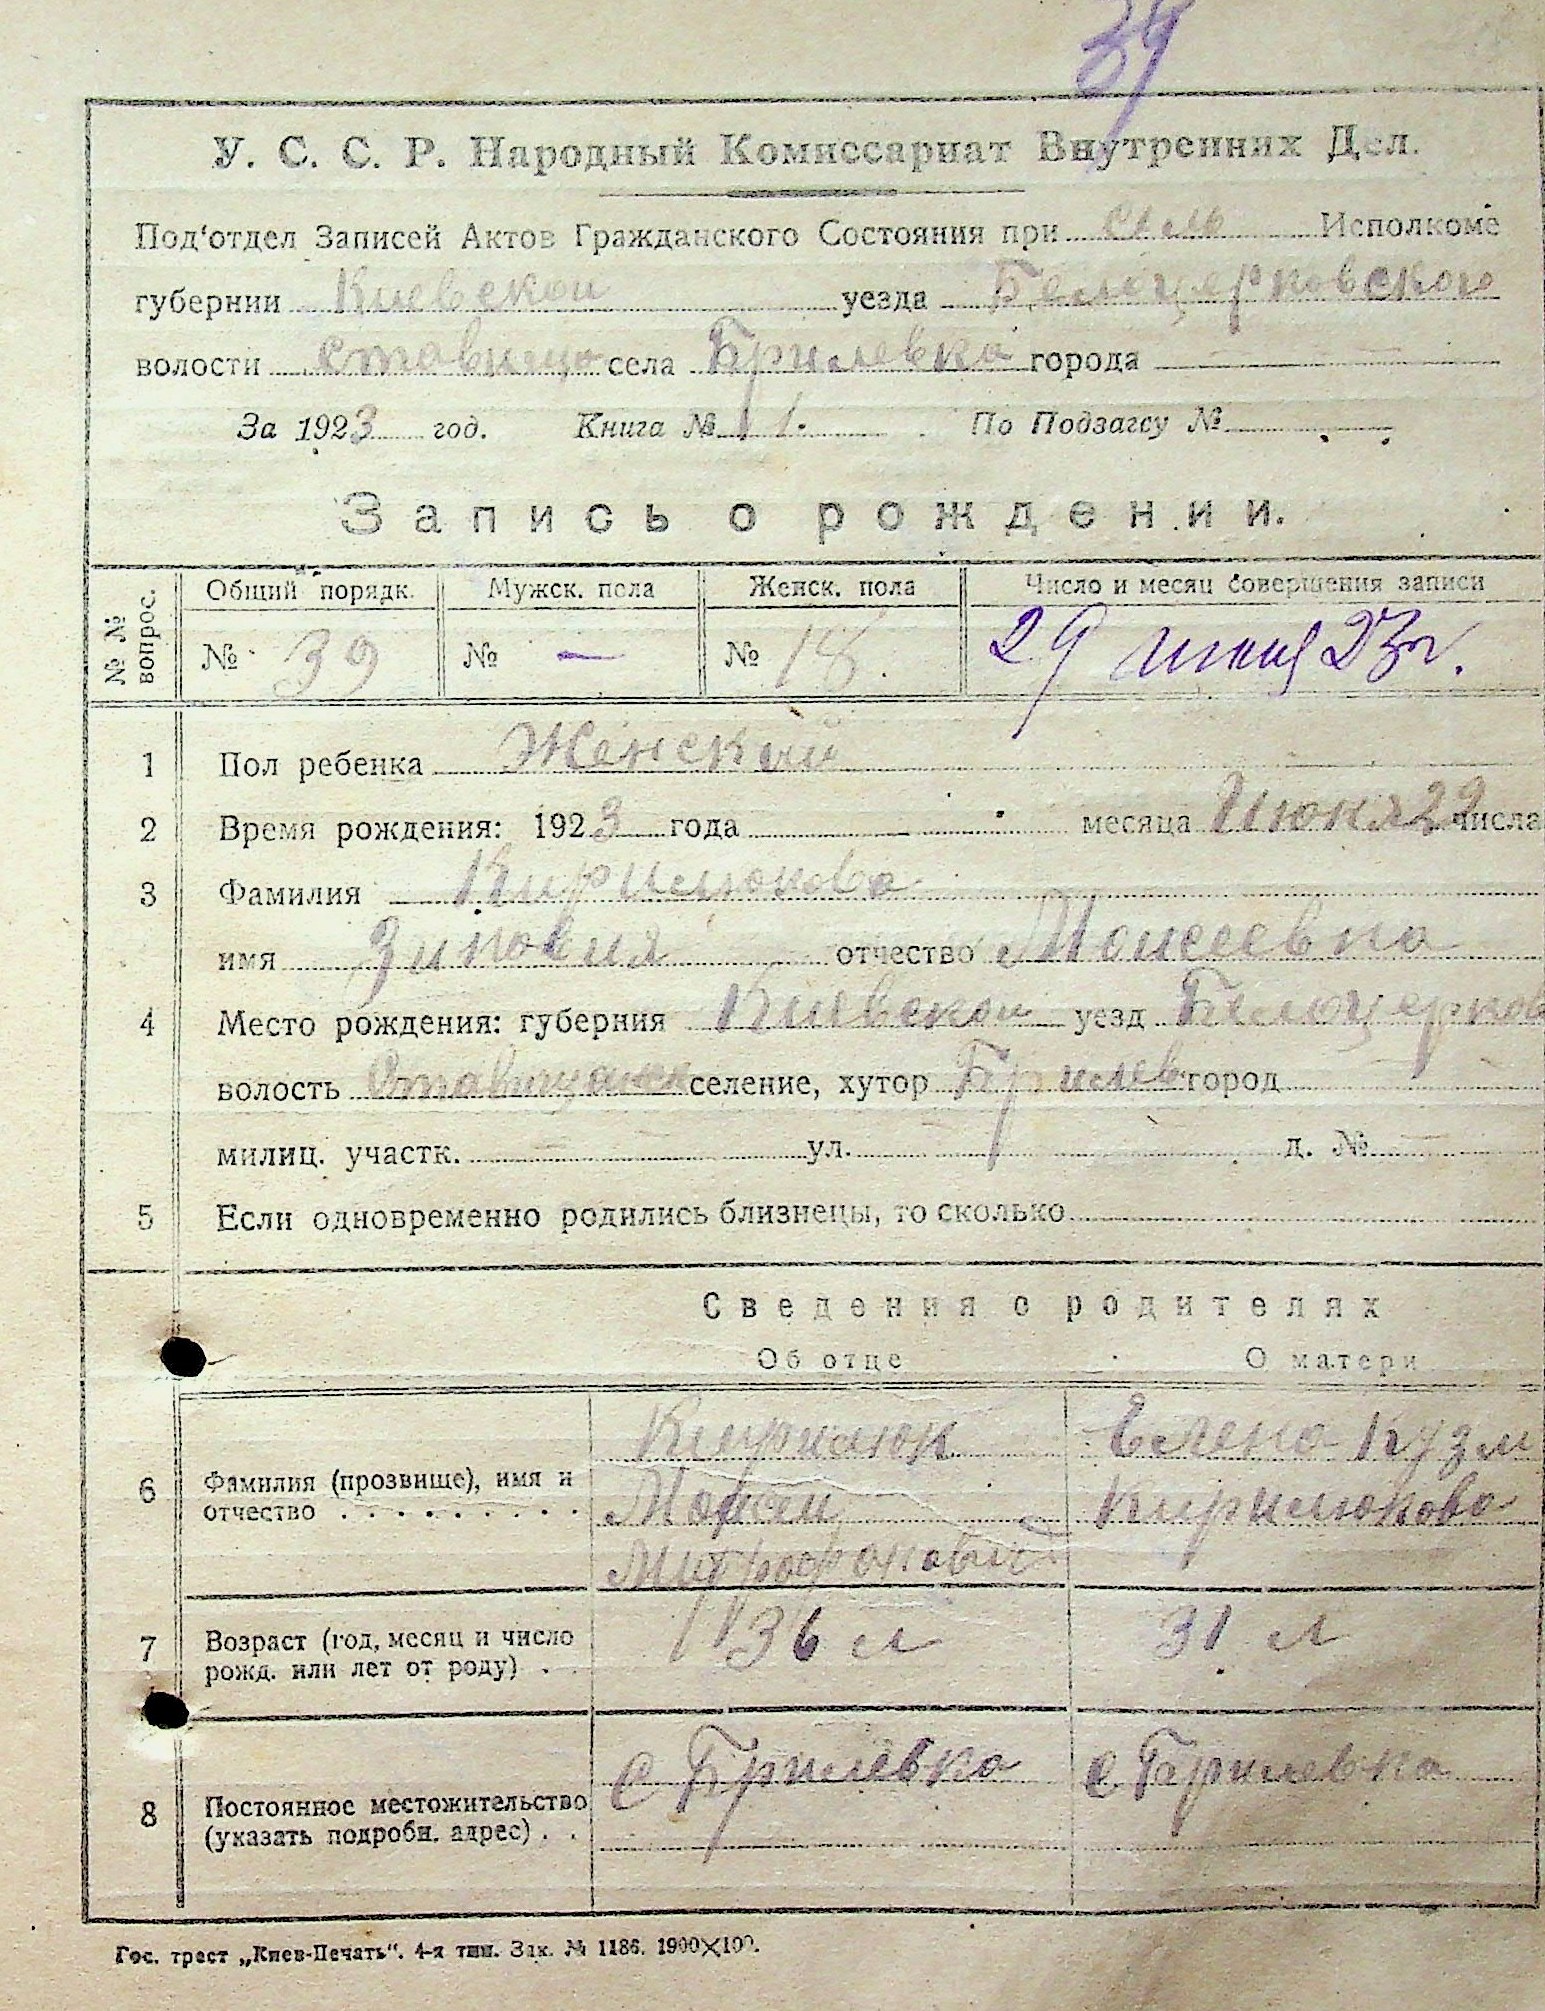 39
У. С. С. Р. Народный Комиссариат Внутренних Дел.
Под'отдел Записей Актов Гражданского Состояния при сель Исполкоме
губернии Киевской уезда Белоцерковского
волости Ставищо села Брилевка города —
За 1923 год. Книга № 1. По Подзагсу №
Запись о рождении.
№ № вопрос. Общий порядк. Мужск. пола Женск. пола Число и месяц совершения записи
№ 39 № — № 18. 29 июня 23 г.
1 Пол ребенка Женский
2 Время рождения: 1923 года месяца Июня 22 числа
3 Фамилия Кирилюкова
имя Зиновия отчество Моисеевна
4 Место рождения: губерния Киевской уезд Белоцерков
волость селение, хутор Брилев город
милиц. участк. — ул. — д. № —
5 Если одновременно родились близнецы, то сколько
Сведения о родителях
Об отце О матери
6 Фамилия (прозвище), имя и отчество
Кирилюк Елена Кузм
Мойсей Кирилюкова
Митрофанович
7 Возраст (год, месяц и число рожд. или лет от роду) 36 л 31 л
8 Постоянное местожительство (указать подробн. адрес) с Брилевка с. Брилевка
Гос. трест „Киев-Печать". 4-я тип. Зак. № 1186. 1900×100.